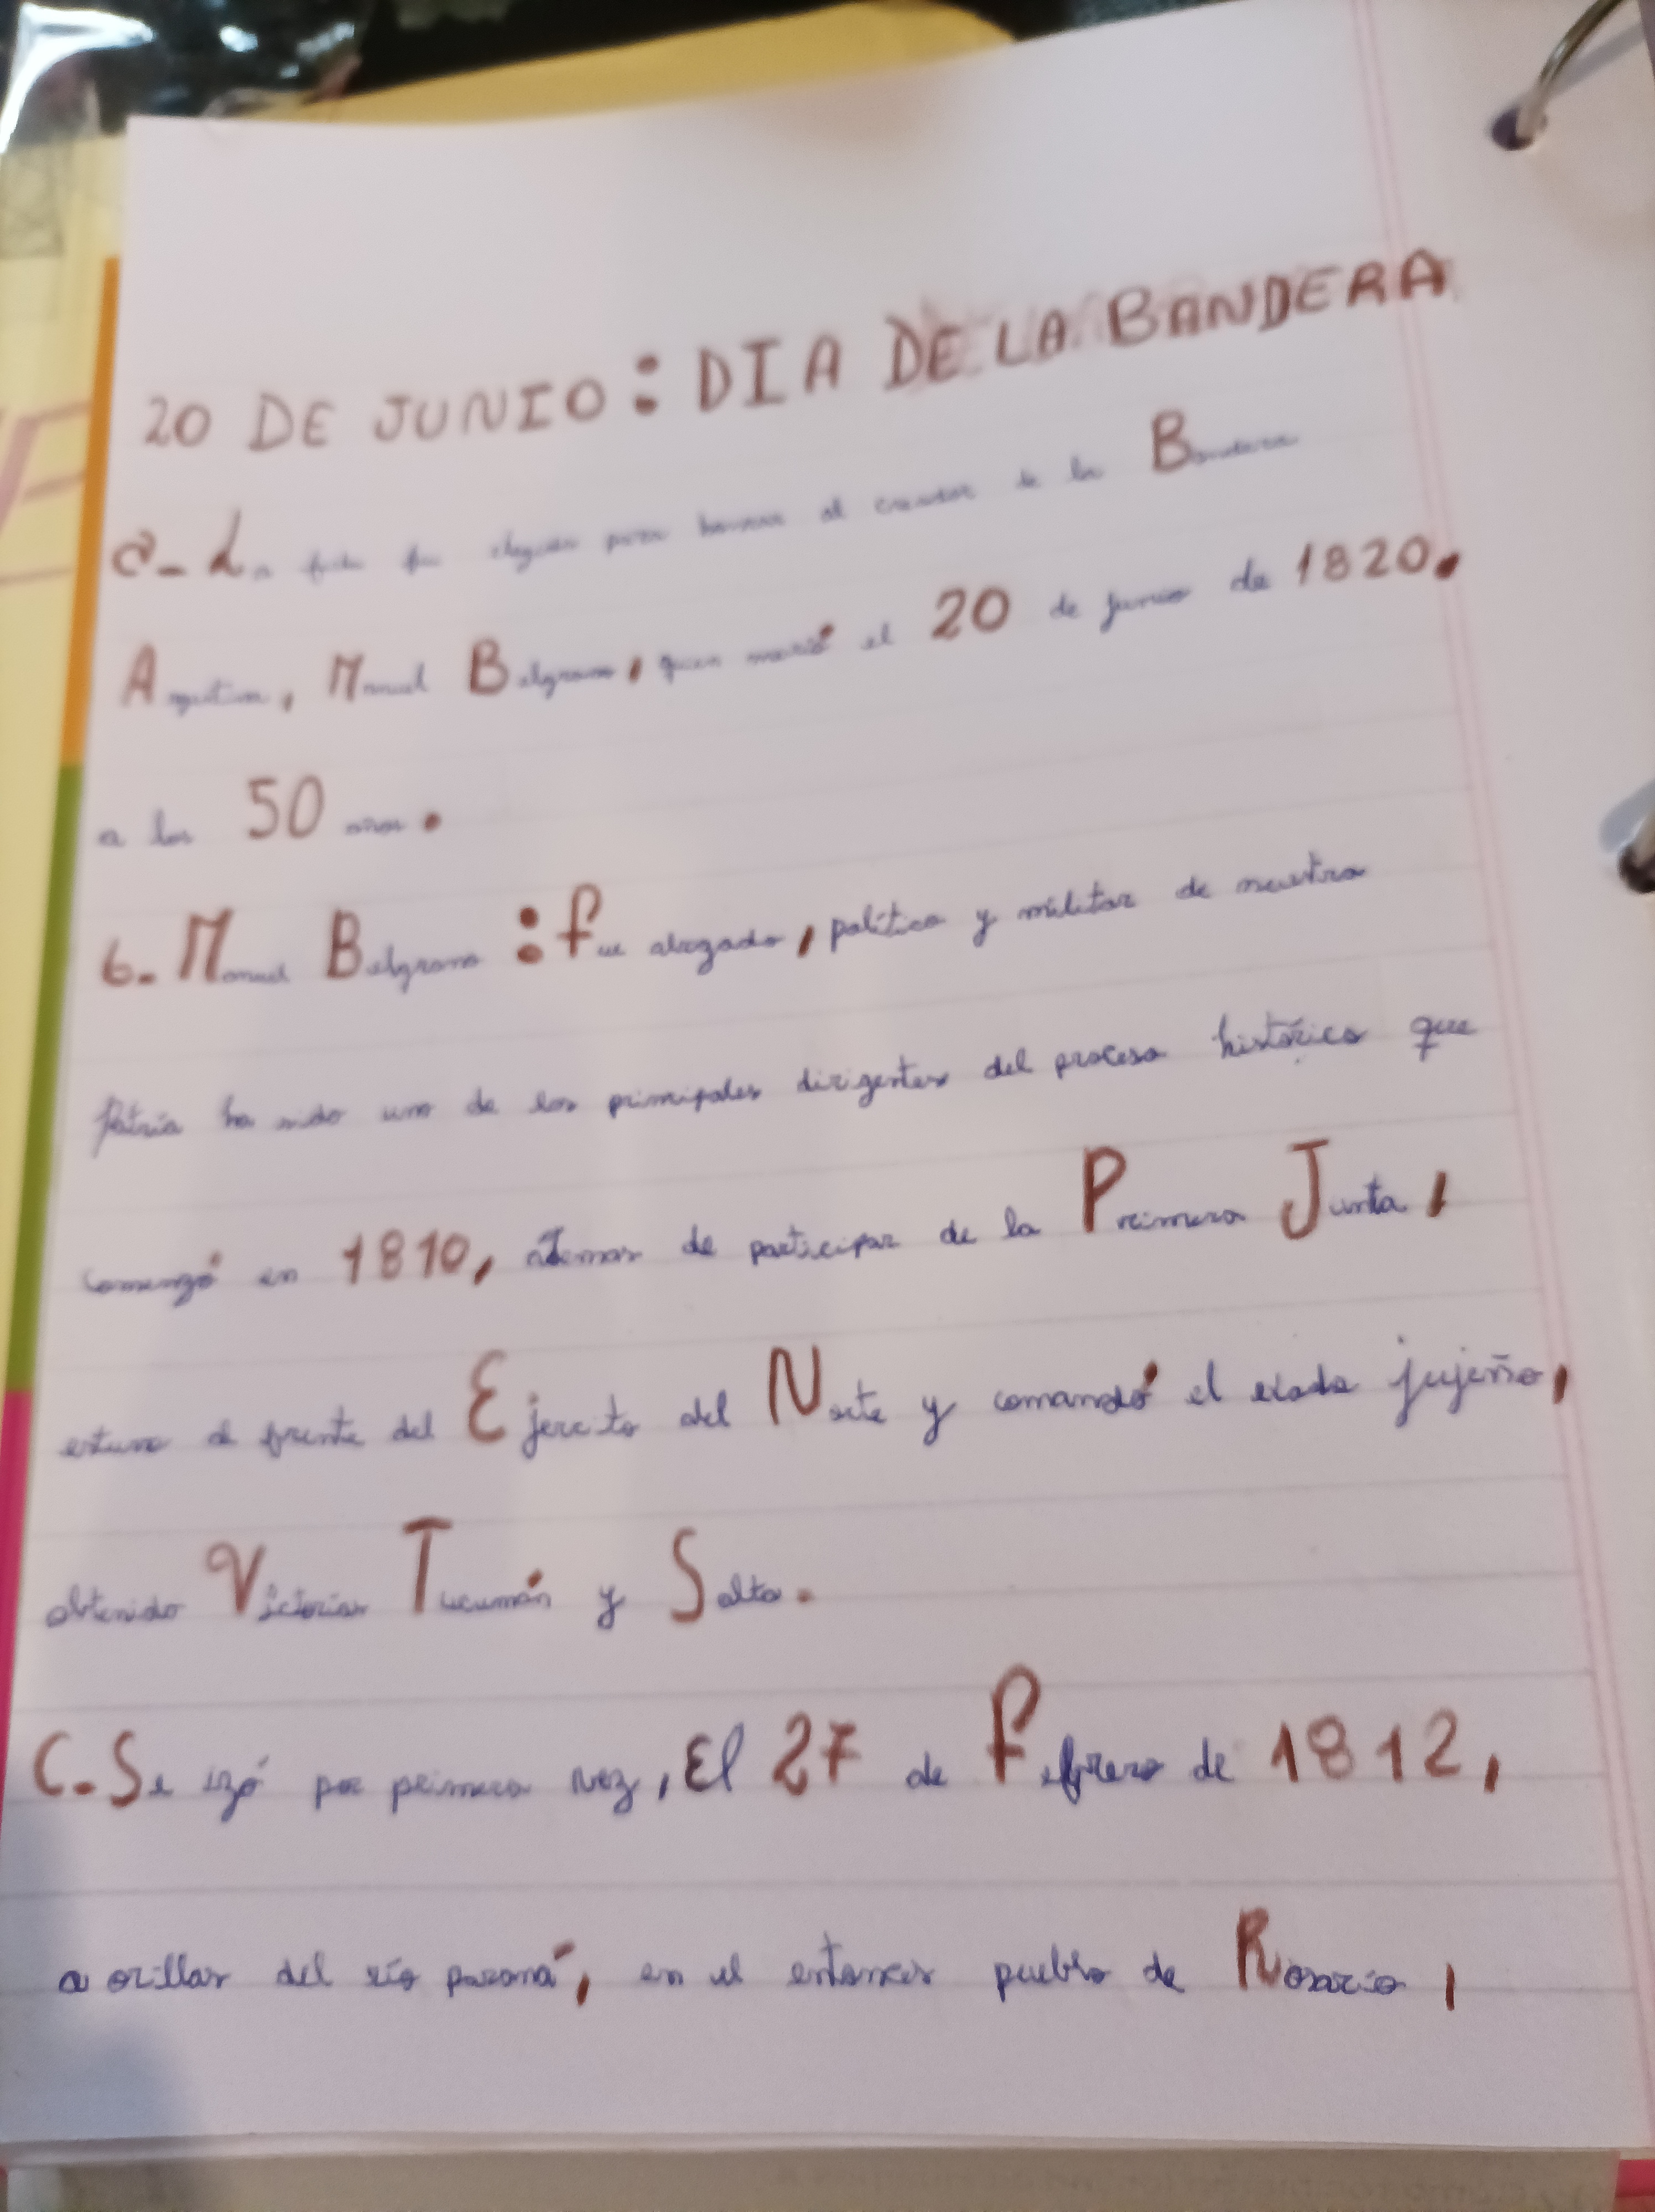 20 DE JUNIO: DIA DE LA BANDERA
a- La fecha fue elegida para honrar al creador de la Bandera
Argentina, Manuel Belgrano, quien murió el 20 de junio de 1820.
a los 50 años.
b- Manuel Belgrano: Fue abogado, político y militar de nuestra
Patria ha sido uno de los principales dirigentes del proceso histórico que
comenzó en 1810, además de participar de la Primera Junta,
estuvo al frente del Ejercito del Norte y comandó el éxodo jujeño,
obtenido Victorias Tucumán y Salta.
C- Se izó por primera vez, El 27 de Febrero de 1812,
a orillas del río paraná, en el entonces pueblo de Rosario,